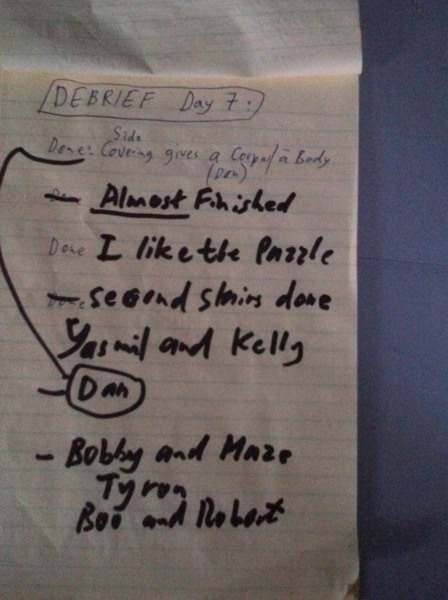 DEBRIEF Day 7:
Side
Done: Covering gives a Corpal à Body
(Dan)
Done Almost Finished
Done I like the Puzzle
Done second stairs done
Yasmil and Kelly
- Dan
- Bobby and Maze
Tyron
Boo and Robert